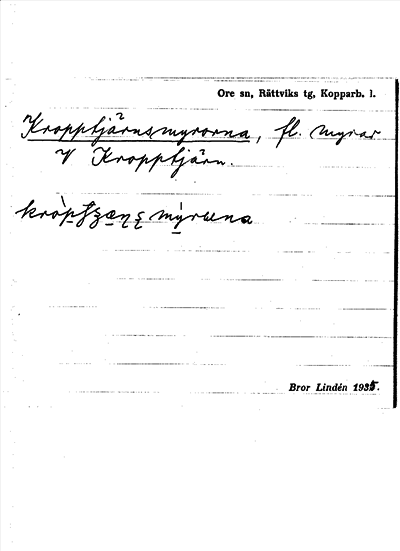 Ore sn, Rättviks tg, Kopparb. l.
Kropptjärnsmyrorna, fl. myrar
V Kropptjärn.
Bror Lindén 1935.